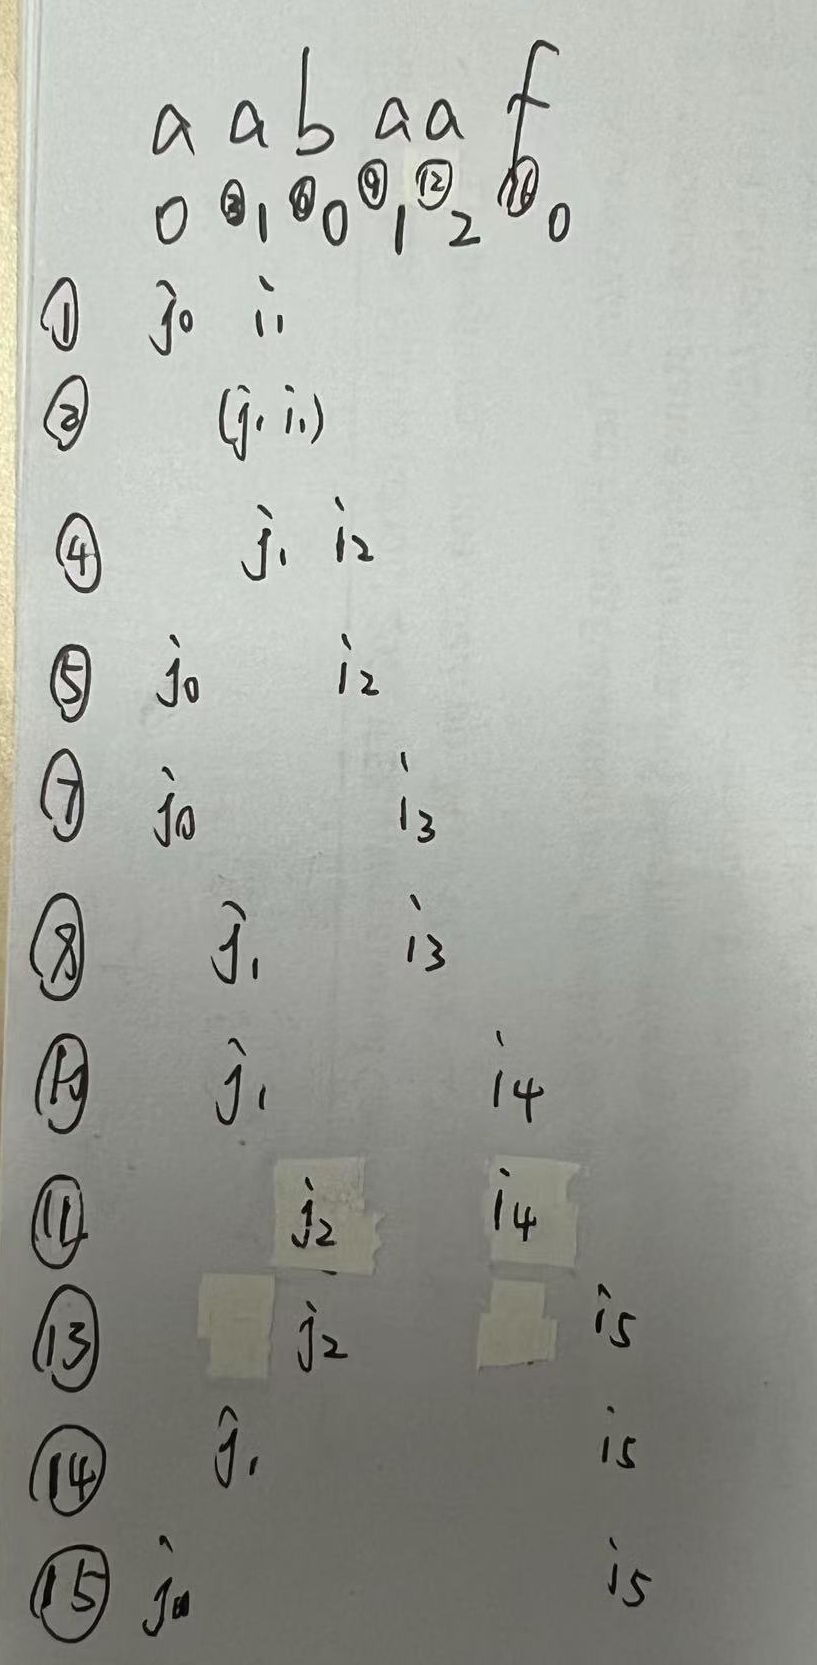 a a b a a f
0 ③1 ⑥0 ⑨1 ⑫2 ⑯0
① j0 i1
② (j1 i1)
④ j1 i2
⑤ j0 i2
⑦ j0 i3
⑧ j1 i3
⑩ j1 i4
⑪ j2 i4
⑬ j2 i5
⑭ j1 i5
⑮ j0 i5